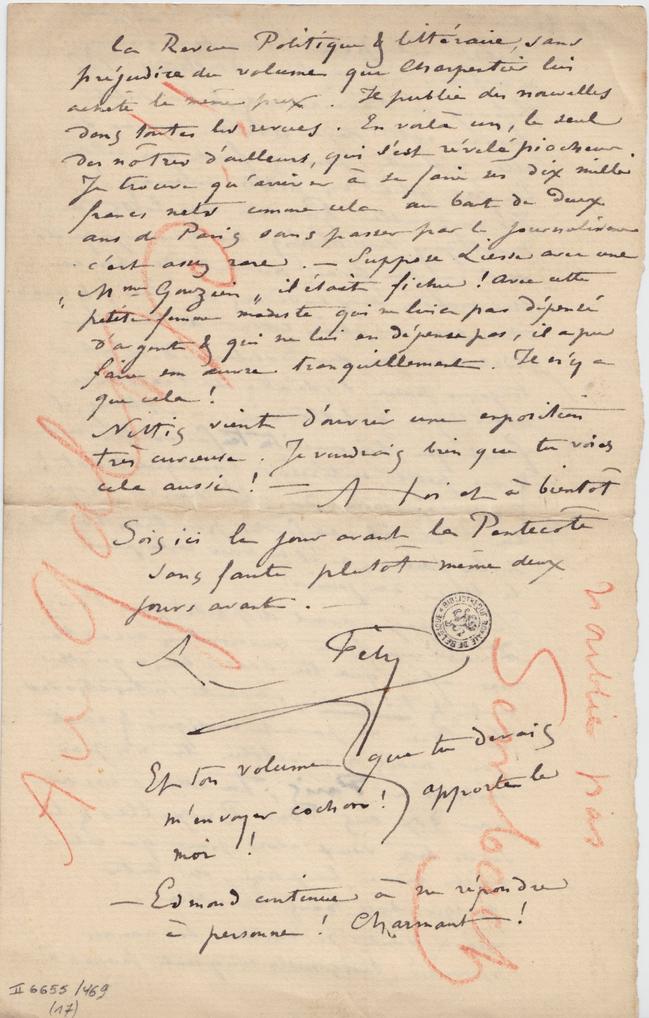 la Revue Politique & littéraire, sans
préjudice du volume que Charpentier lui
achète le même prix. Il publie des nouvelles
dans toutes les revues. En voilà un, le seul
des nôtres d'ailleurs, qui s'est révélé piocheur.
Je trouve qu'arriver à se faire ses dix mille
francs nets comme cela au bout de deux
ans de Paris sans passer par le journalisme
c'est assez rare. — Suppose Liesse avec une
"Mme Gouzien" il était fichu ! Avec cette
petite femme modeste qui ne lui a pas dépensé
d'argent & qui ne lui en dépense pas, il a pu
faire son œuvre tranquillement. Il n'y a
que cela !
Nittis vient d'ouvrir une exposition
très curieuse. Je voudrais bien que tu voies
cela aussi ! — A toi et à bientôt
Sois ici le jour avant la Pentecôte
sans faute plutôt même deux
jours avant. —
Fély
Et ton volume que tu devais
m'envoyer cochon ! apporte le
moi !
— Edmond continue à ne répondre
à personne ! Charmant !
n'oublie pas
BIBLIOTHÈQUE ROYALE DE BELGIQUE
II 6655/469
(17)